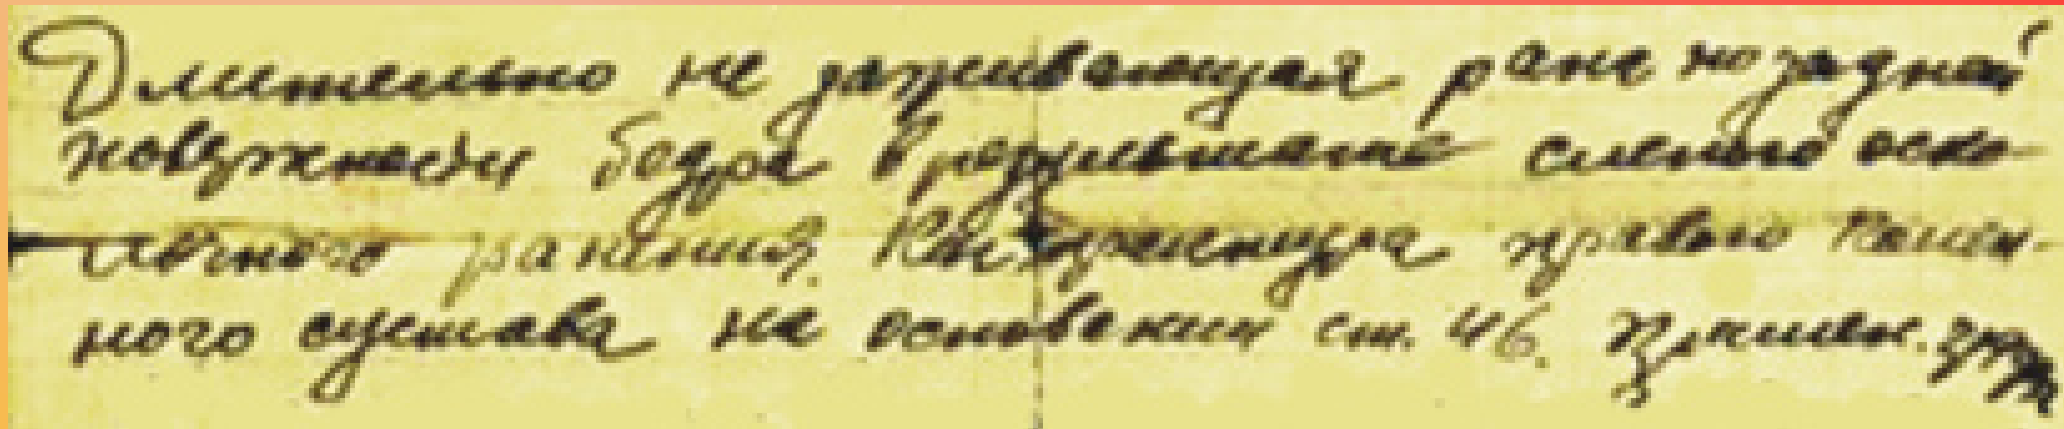 Длительно не заживающая рана по задней
поверхности бедра в результате слепого оско-
лочного ранения. Контрактура правого колен-
ного сустава на основании ст. 46.